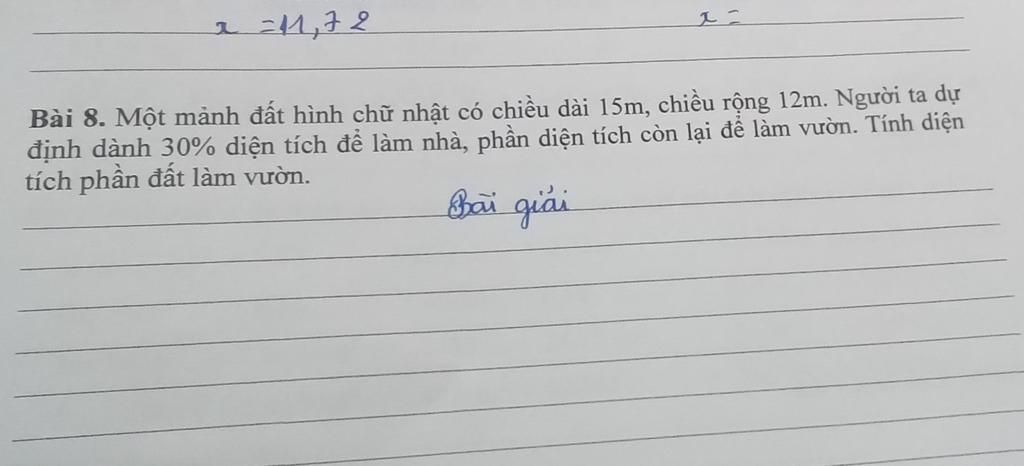 x = 11,72 x =
Bài 8. Một mảnh đất hình chữ nhật có chiều dài 15m, chiều rộng 12m. Người ta dự
định dành 30% diện tích để làm nhà, phần diện tích còn lại để làm vườn. Tính diện
tích phần đất làm vườn.
Bài giải